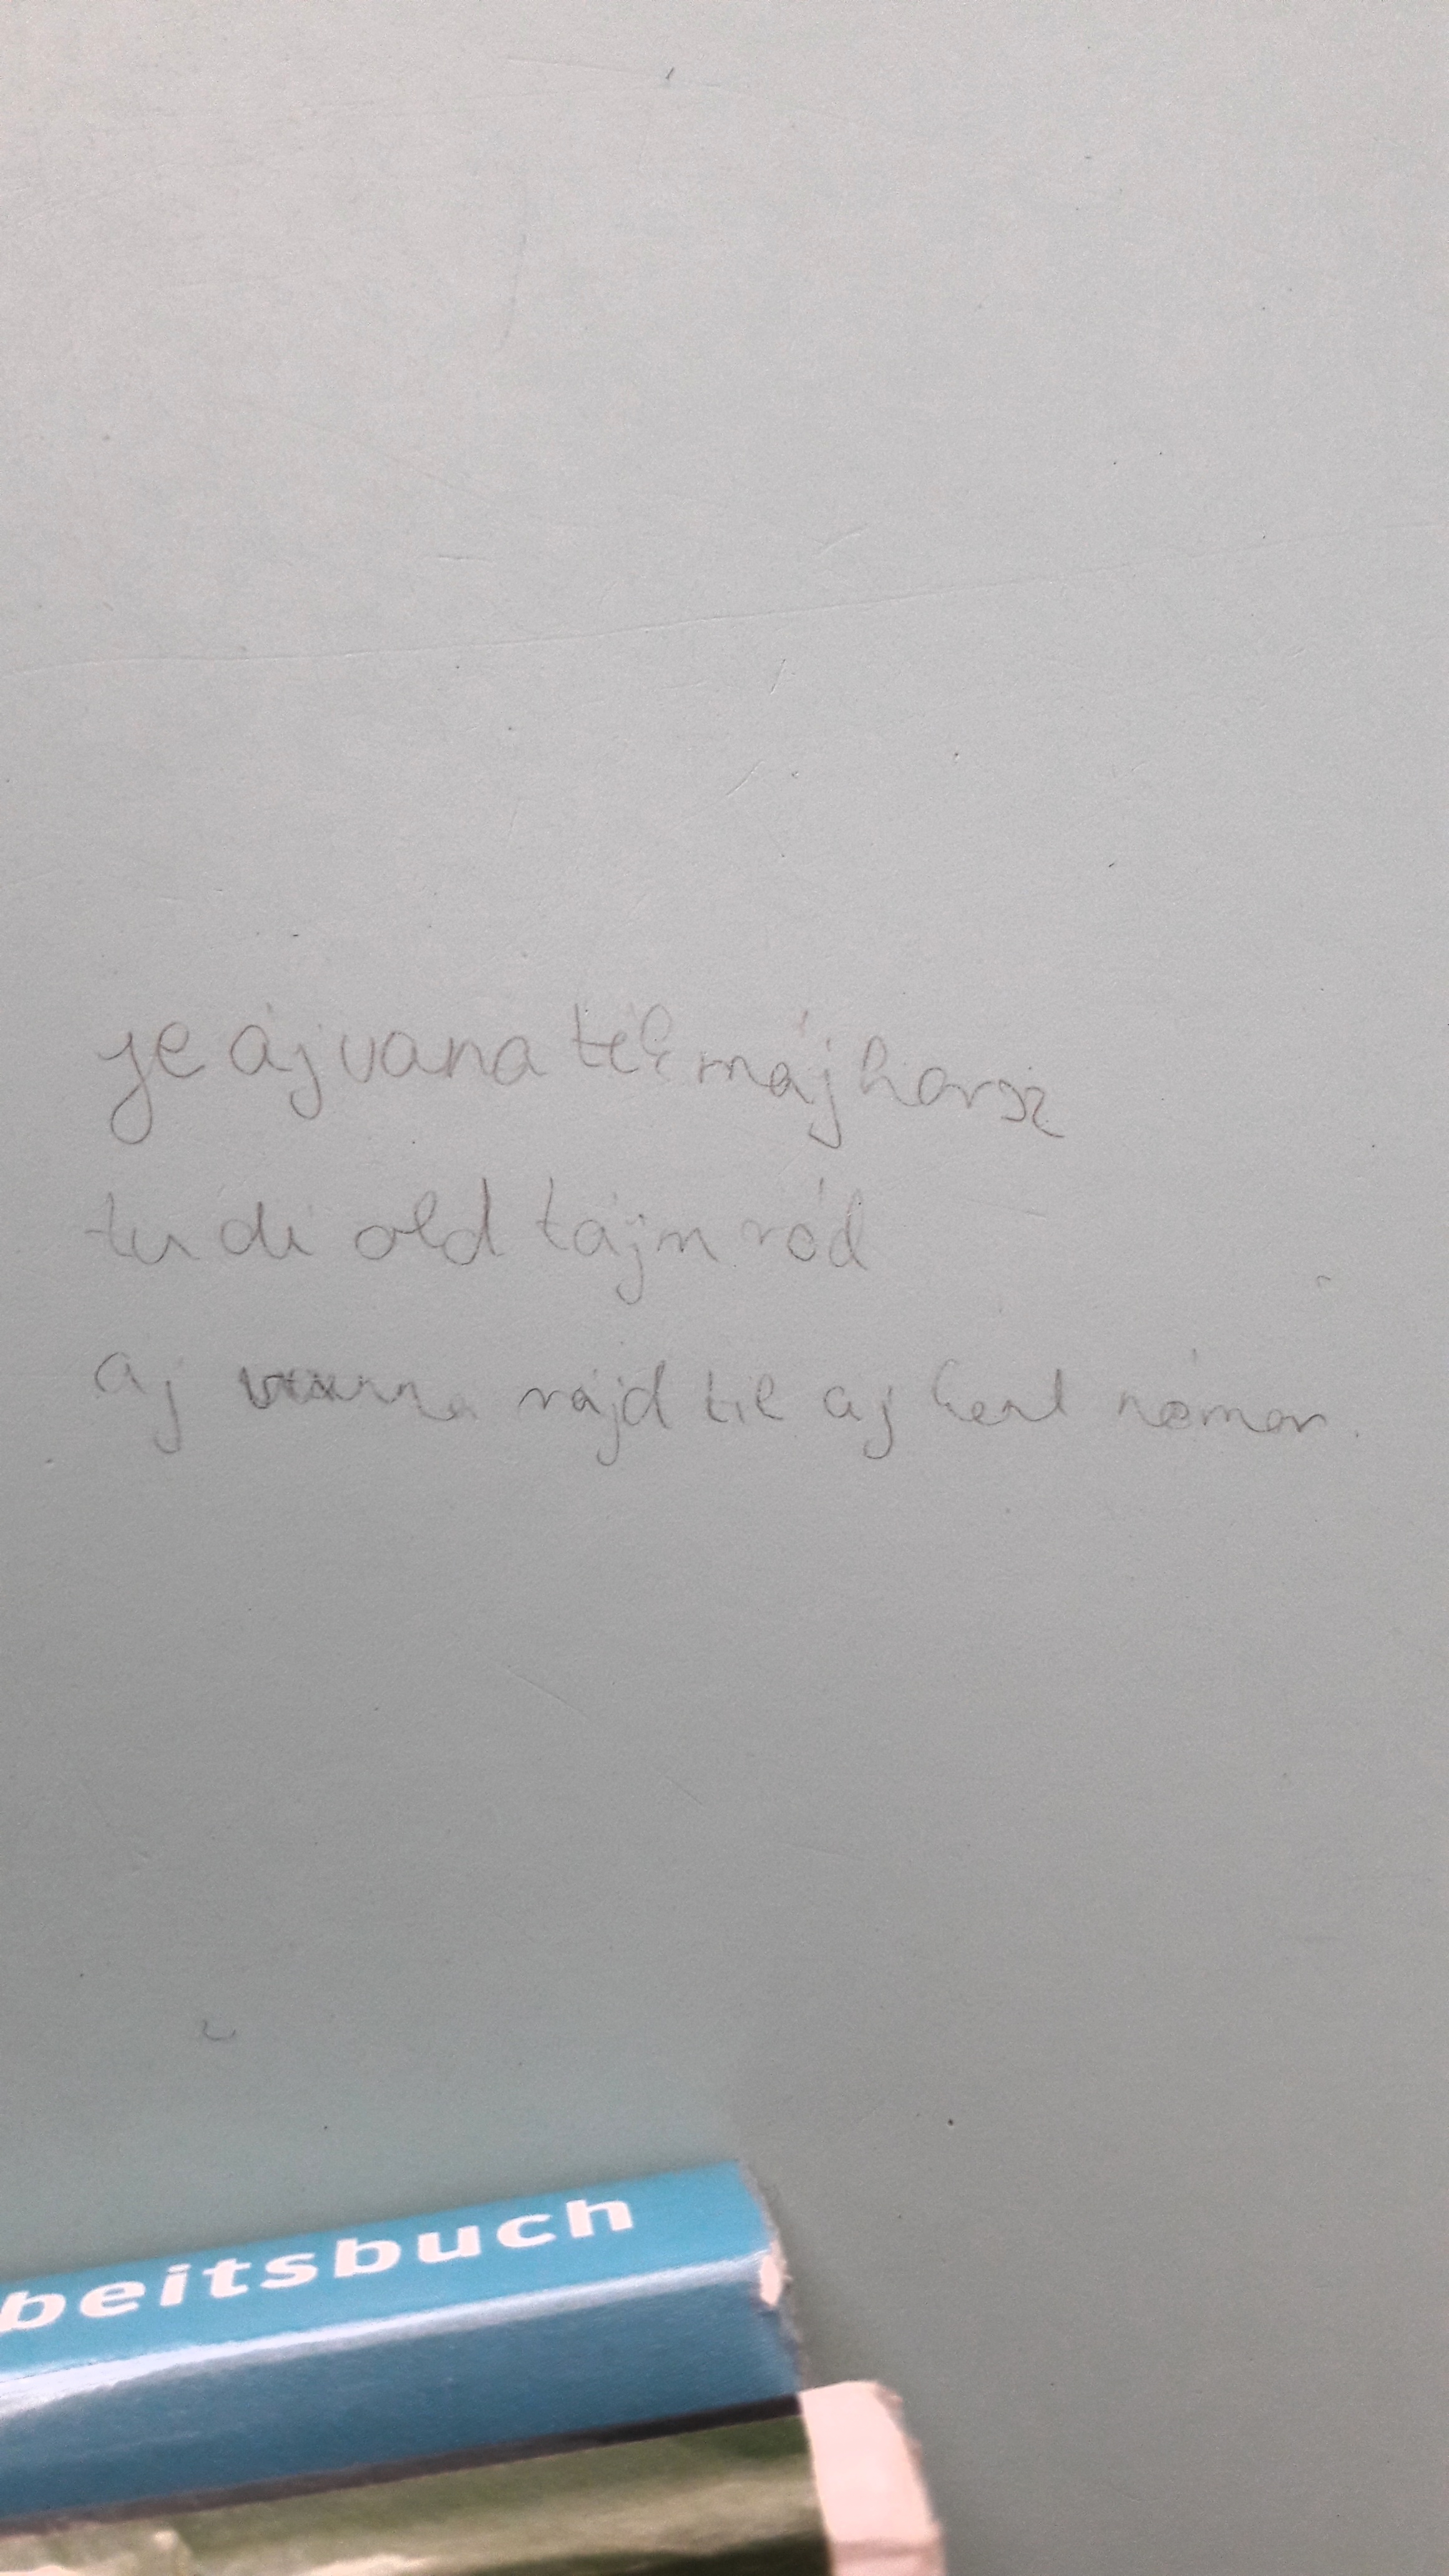 je áj vana tek máj horsz
tu di old tájm ród
aj vanna rájd til aj kent nomor.
beitsbuch